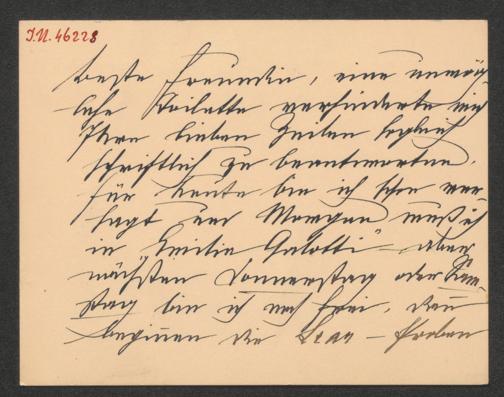 I.N. 46228
Beste Freundin, eine unmög-
liche Toilette verhinderte mich
Ihre lieben Zeilen sogleich
schriftlich zu beantworten.
Für heute bin ich schon ver-
sagt und Morgen muß ich
in „Emilia Galotti" – aber
nächsten Donnerstag oder Sam-
stag bin ich noch frei, dann
beginnen die Lear – Proben